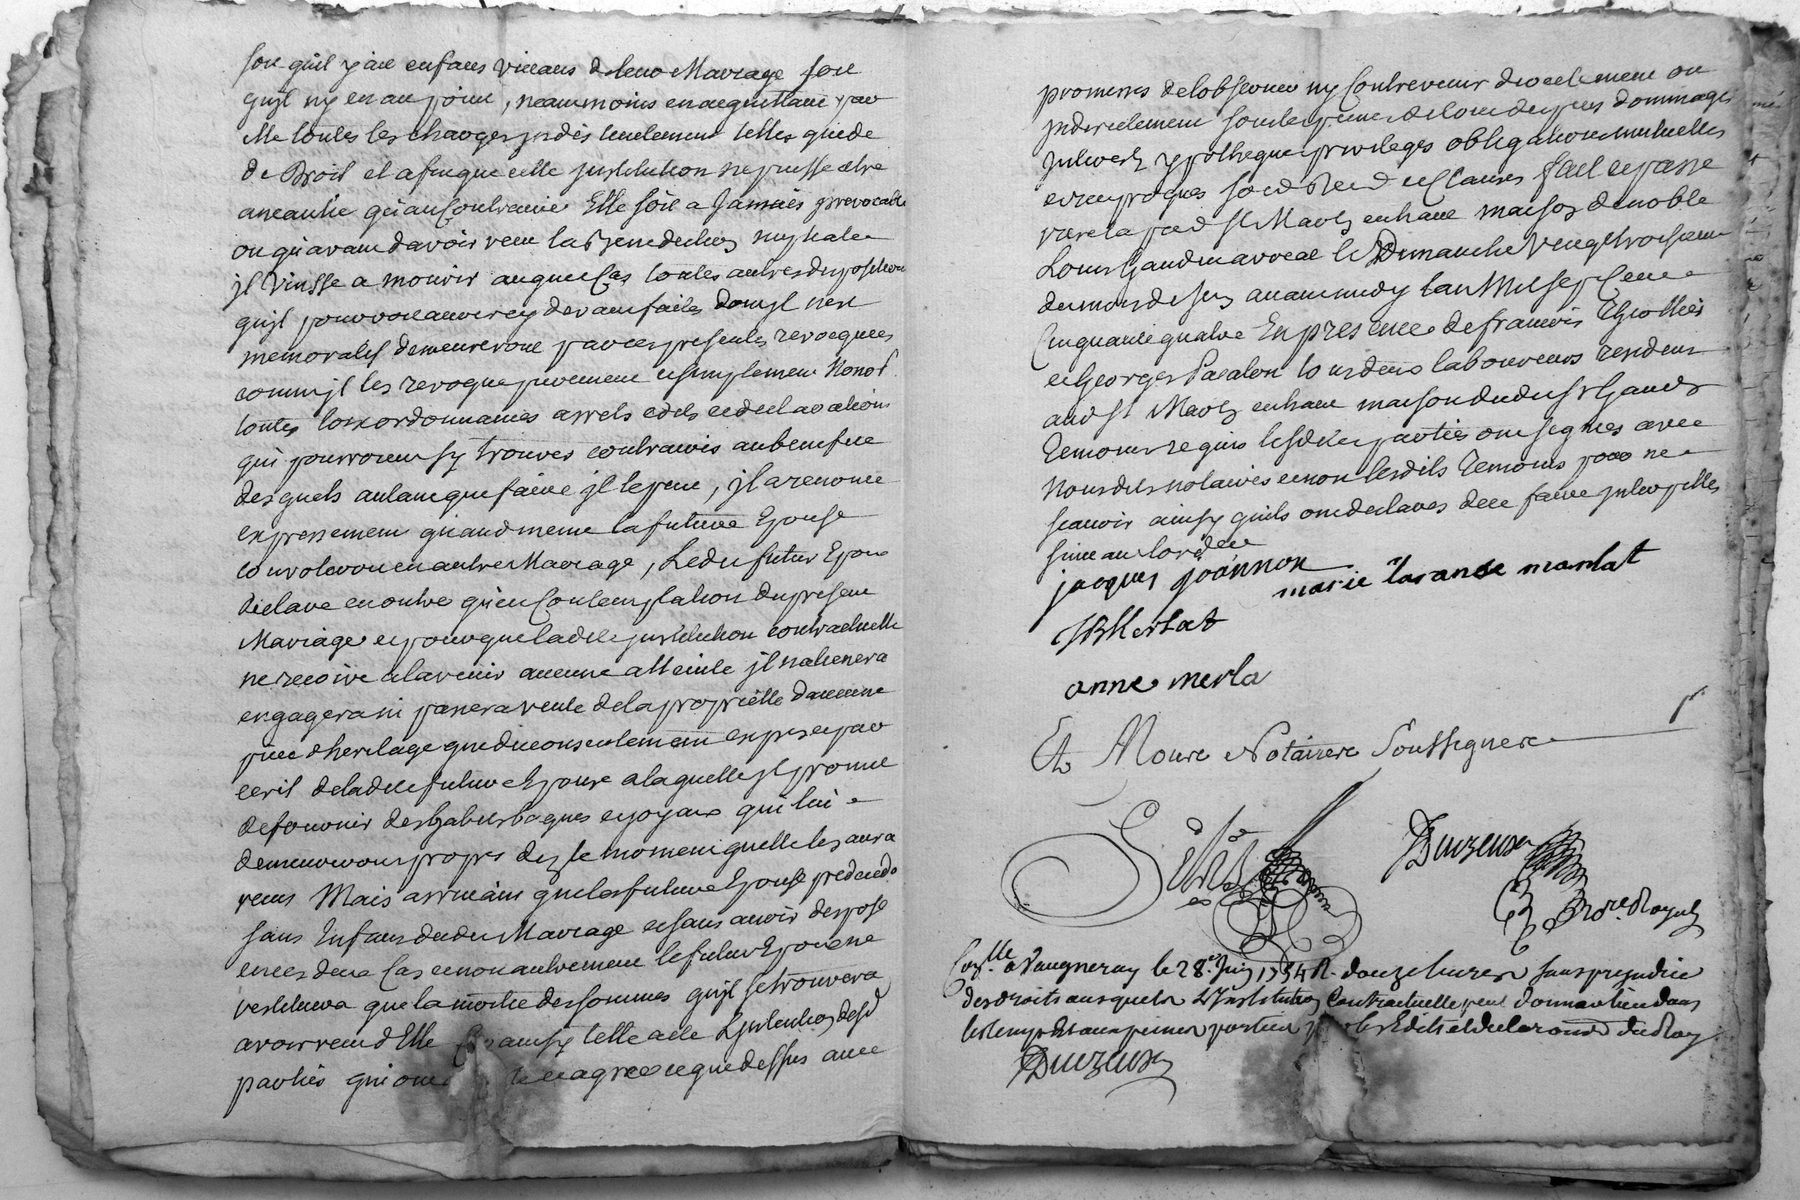 soit quil y ait enfants vivans de leur Mariage soit
quil ny en ait point, neanmoins en acquittant par
elle toutes les charges jcelles tenlement telles que de
de Droit et afin que cette jnstitution ne puisse estre
aneantie qu'au Contraire Elle soit a Jamais jrrevocable
ou qu'avant d'avoir reçu la Bene don nuptiale
jl vinsse a mourir auquel Cas toutes autres dispositions
quil pourroit avoir cy devant faites dont jl nest
memoratif demeureront par ces presentes revocquées
comme jl les revoque purement et simplement Nonobt
toutes loix ordonnances arrets edits et declarations
qui pourroient sy trouver contraires au benefice
desquels autant que faire jl le peut, jl a renoncé
expressement quand meme la future Epouse
convoleroit en autre Mariage, Ledit futur Epoux
declare en outre qu'en Contemplation du present
Mariage et pour que ladte jnstitution contractuelle
ne recoive a lavenir aucune atteinte jl nalienera
engagera ni passera vente de la proprietté d'aucune
piece dheritage que du consentement exprès et par
ecrit de ladte future Epouse a laquelle jl promet
de fournir des habits bagues et joyaux qui lui
demeureront propres dez le moment quelle les aura
reçus Mais arrivant que la future Epouse predeceda
sans Enfans dudit Mariage et sans avoir disposé
en ces deux Cas et non autrement le futur Epoux ne
restituera que la moitié des sommes quil se trouvera
avoir reçu d'Elle Car ainsy telle a été L'jntention desd
parties qui ont le tout agreé ce que dessus avec
promesses de lobserver ny Contrevenir directement ou
jndirectement sous les peines de tous depens dommages
jnterets ypotheque privileges obligations mutuelles
et reciproques soud Rend et Clauses fait et passé
St Martin en haut maison de noble
Louis Gaudin avocat le Dimanche vingt troisieme
du mois de Juin avant midy lan Mil sept Cent
Cinquante quatre En presence de francois Throllier
et George Pacalon tous deux laboureurs residens
aud St Martin en haut maison dudit Sr Gaudin
temoins requis lesdites parties ont signés avec
Nousdits notaires et non lesdits temoins pour ne
scavoir ainsy quils ont declarés de ce faire jnterpellés
suivant lordce
jacques joannon marie laranse marlat
JB Merlat
anne merla
Et Nous Notaires Soussignes
Duizeux
Nore Royal
Conlle a Vaugneray le 28e Juin 1754 R. douze livres sans prejudice
des droits ausquels L'Institution Contractuelle peut donner lieu dans
les temps et aux peines portées par les Edits et declarations du Roy
Duizeux